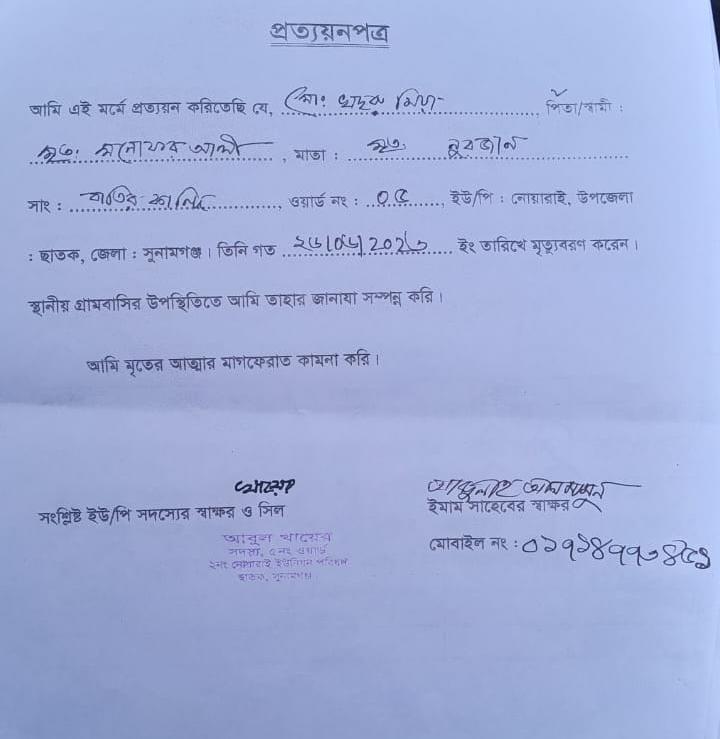 প্রত্যয়নপত্র
আমি এই মর্মে প্রত্যয়ন করিতেছি যে, মোঃ ছাদক মিয়া, পিতা/স্বামী :
মৃত. মনোহর আলী, মাতা : মৃত. নুরজান
সাং : বাতির কান্দি, ওয়ার্ড নং : ০৫, ইউ/পি : নোয়ারাই, উপজেলা
: ছাতক, জেলা : সুনামগঞ্জ। তিনি গত ইং তারিখে মৃত্যুবরণ করেন।
স্থানীয় গ্রামবাসির উপস্থিতিতে আমি তাহার জানাযা সম্পন্ন করি।
আমি মৃতের আত্মার মাগফেরাত কামনা করি।
সংশ্লিষ্ট ইউ/পি সদস্যের স্বাক্ষর ও সিল
আবুল খায়ের
সদস্য, ৫নং ওয়ার্ড
২নং নোয়ারাই ইউনিয়ন পরিষদ
ছাতক, সুনামগঞ্জ
ইমাম সাহেবের স্বাক্ষর
মোবাইল নং :